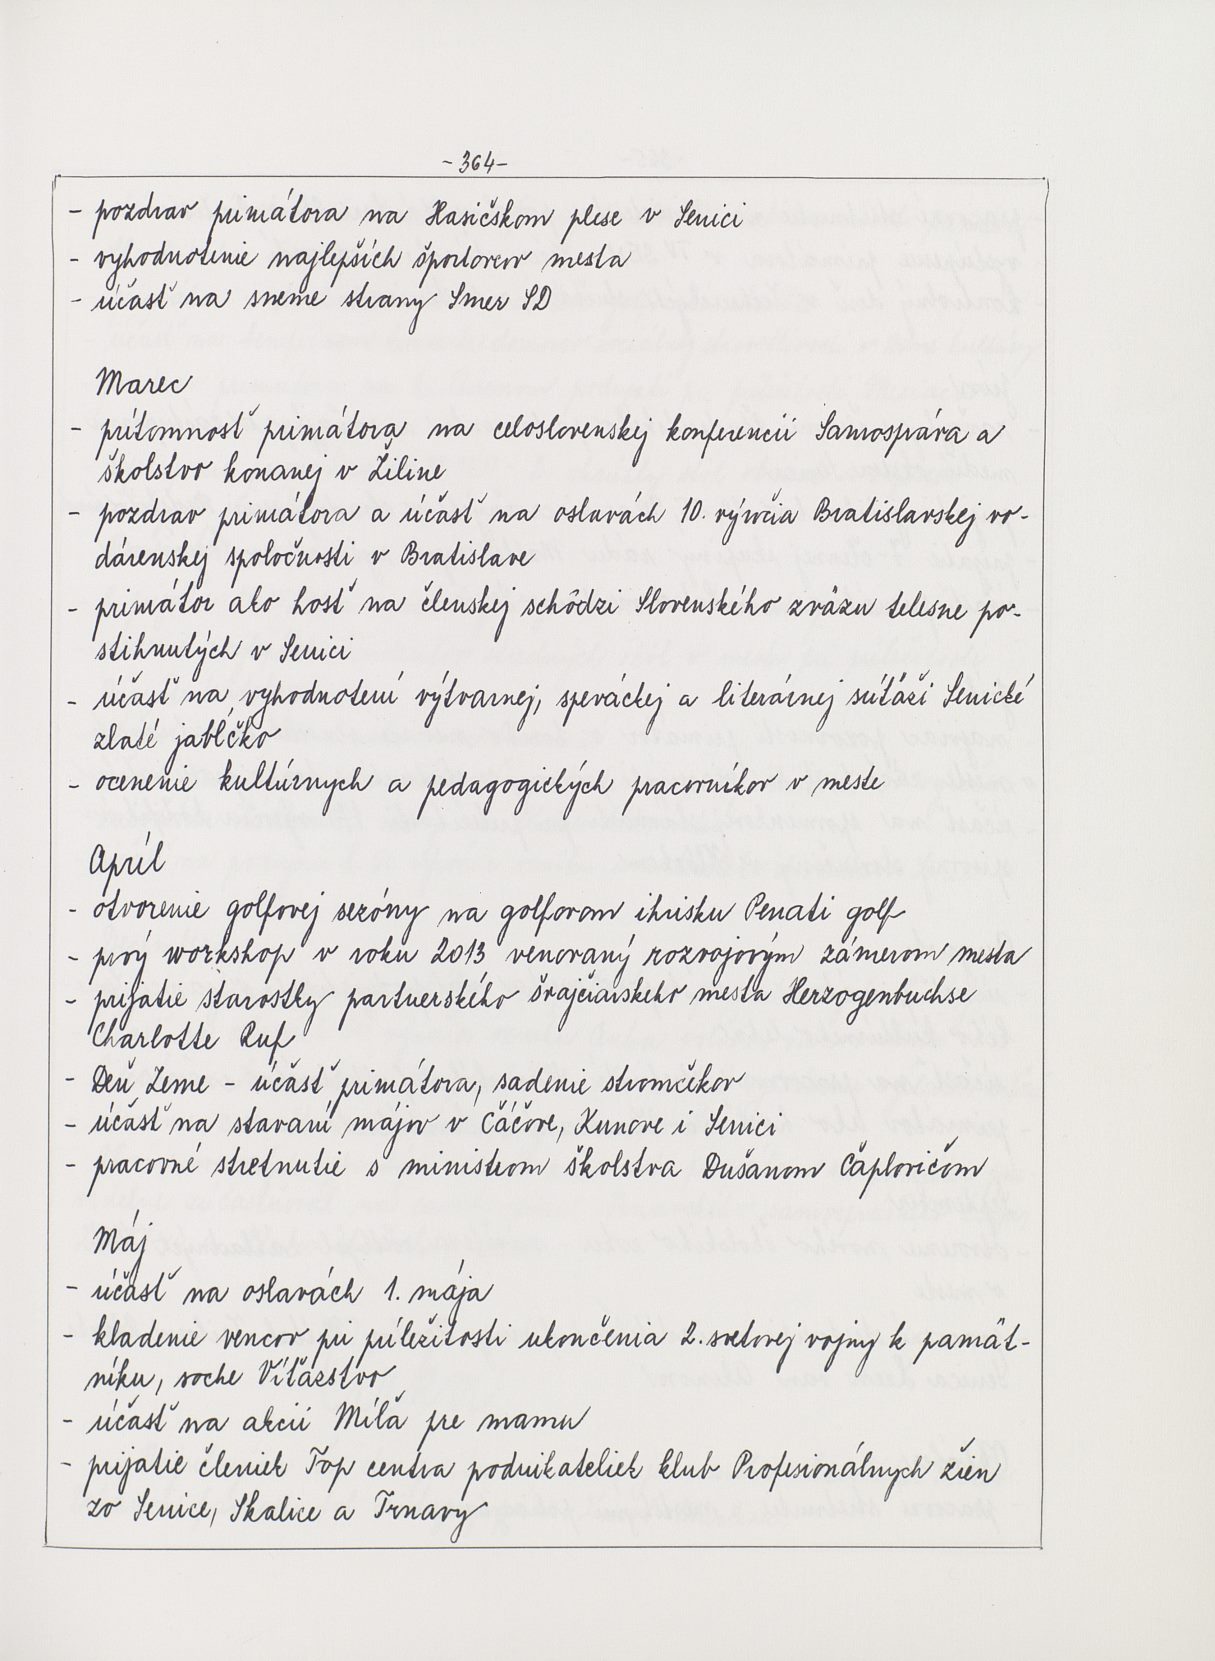 -364-
- pozdrav primátora na Hasičskom plese v Senici
- vyhodnotenie najlepších športovcov mesta
- účasť na sneme strany Smer SD
Marec
- prítomnosť primátora na celoslovenskej konferencii Samospráva a
školstvo konanej v Žiline
- pozdrav primátora a účasť na oslavách 10. výročia Bratislavskej vo-
dárenskej spoločnosti v Bratislave
- primátor ako hosť na členskej schôdzi Slovenského zväzu telesne po-
stihnutých v Senici
- účasť na vyhodnotení výtvarnej, speváckej a literárnej súťaži Senické
zlaté jabĺčko
- ocenenie kultúrnych a pedagogických pracovníkov v meste
Apríl
- otvorenie golfovej sezóny na golfovom ihrisku Penati golf
- prvý workshop v roku 2013 venovaný rozvojovým zámerom mesta
- prijatie starostky partnerského švajčiarskeho mesta Herzogenbuchse
Charlotte Ruf
- Deň Zeme - účasť primátora, sadenie stromčekov
- účasť na stavaní májov v Čáčove, Kunove i Senici
- pracovné stretnutie s ministrom školstva Dušanom Čaplovičom
Máj
- účasť na oslavách 1. mája
- kladenie vencov pri príležitosti ukončenia 2. svetovej vojny k pamät-
níku, soche Víťazstvo
- účasť na akcii Míľa pre mamu
- prijatie členiek Top centra podnikateliek klub Profesionálnych žien
zo Senice, Skalice a Trnavy